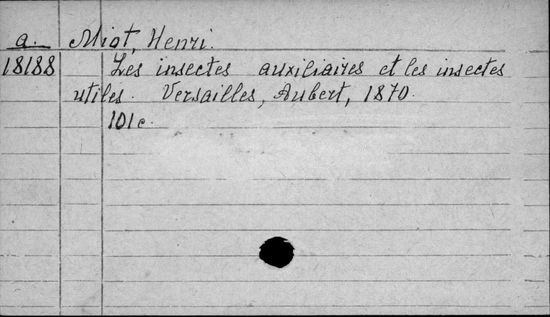 a. Miot, Henri.
18188 Les insectes auxiliaires et les insectes
utiles. Versailles, Aubert, 1870.
101 c.